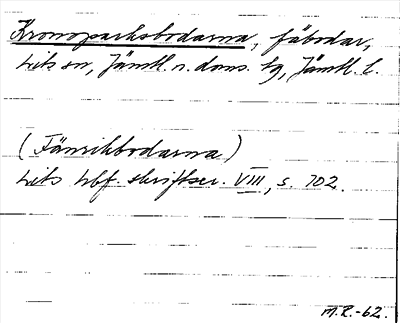 Kronoparksbodarna, fäbodar,
Lits sn, Jämtl. n. doms. tg, Jämtl. l.
(Fänrikbodarna)
Lits hbf. skriftser. VIII, s. 102.
M.R.-62.